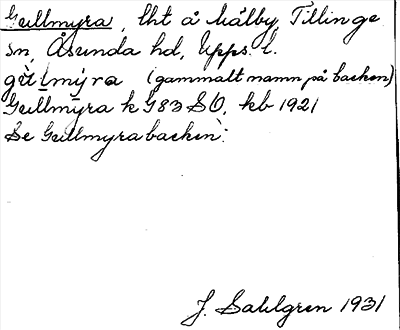 Gullmyra, lht å Målby, Tillinge
sn, Åsunda hd, Upps. l.
gùl̄mýra (gammalt namn på backen)
Gullmyra k G83 SO, kb 1921
Se Gullmyrabacken.
J. Sahlgren 1931